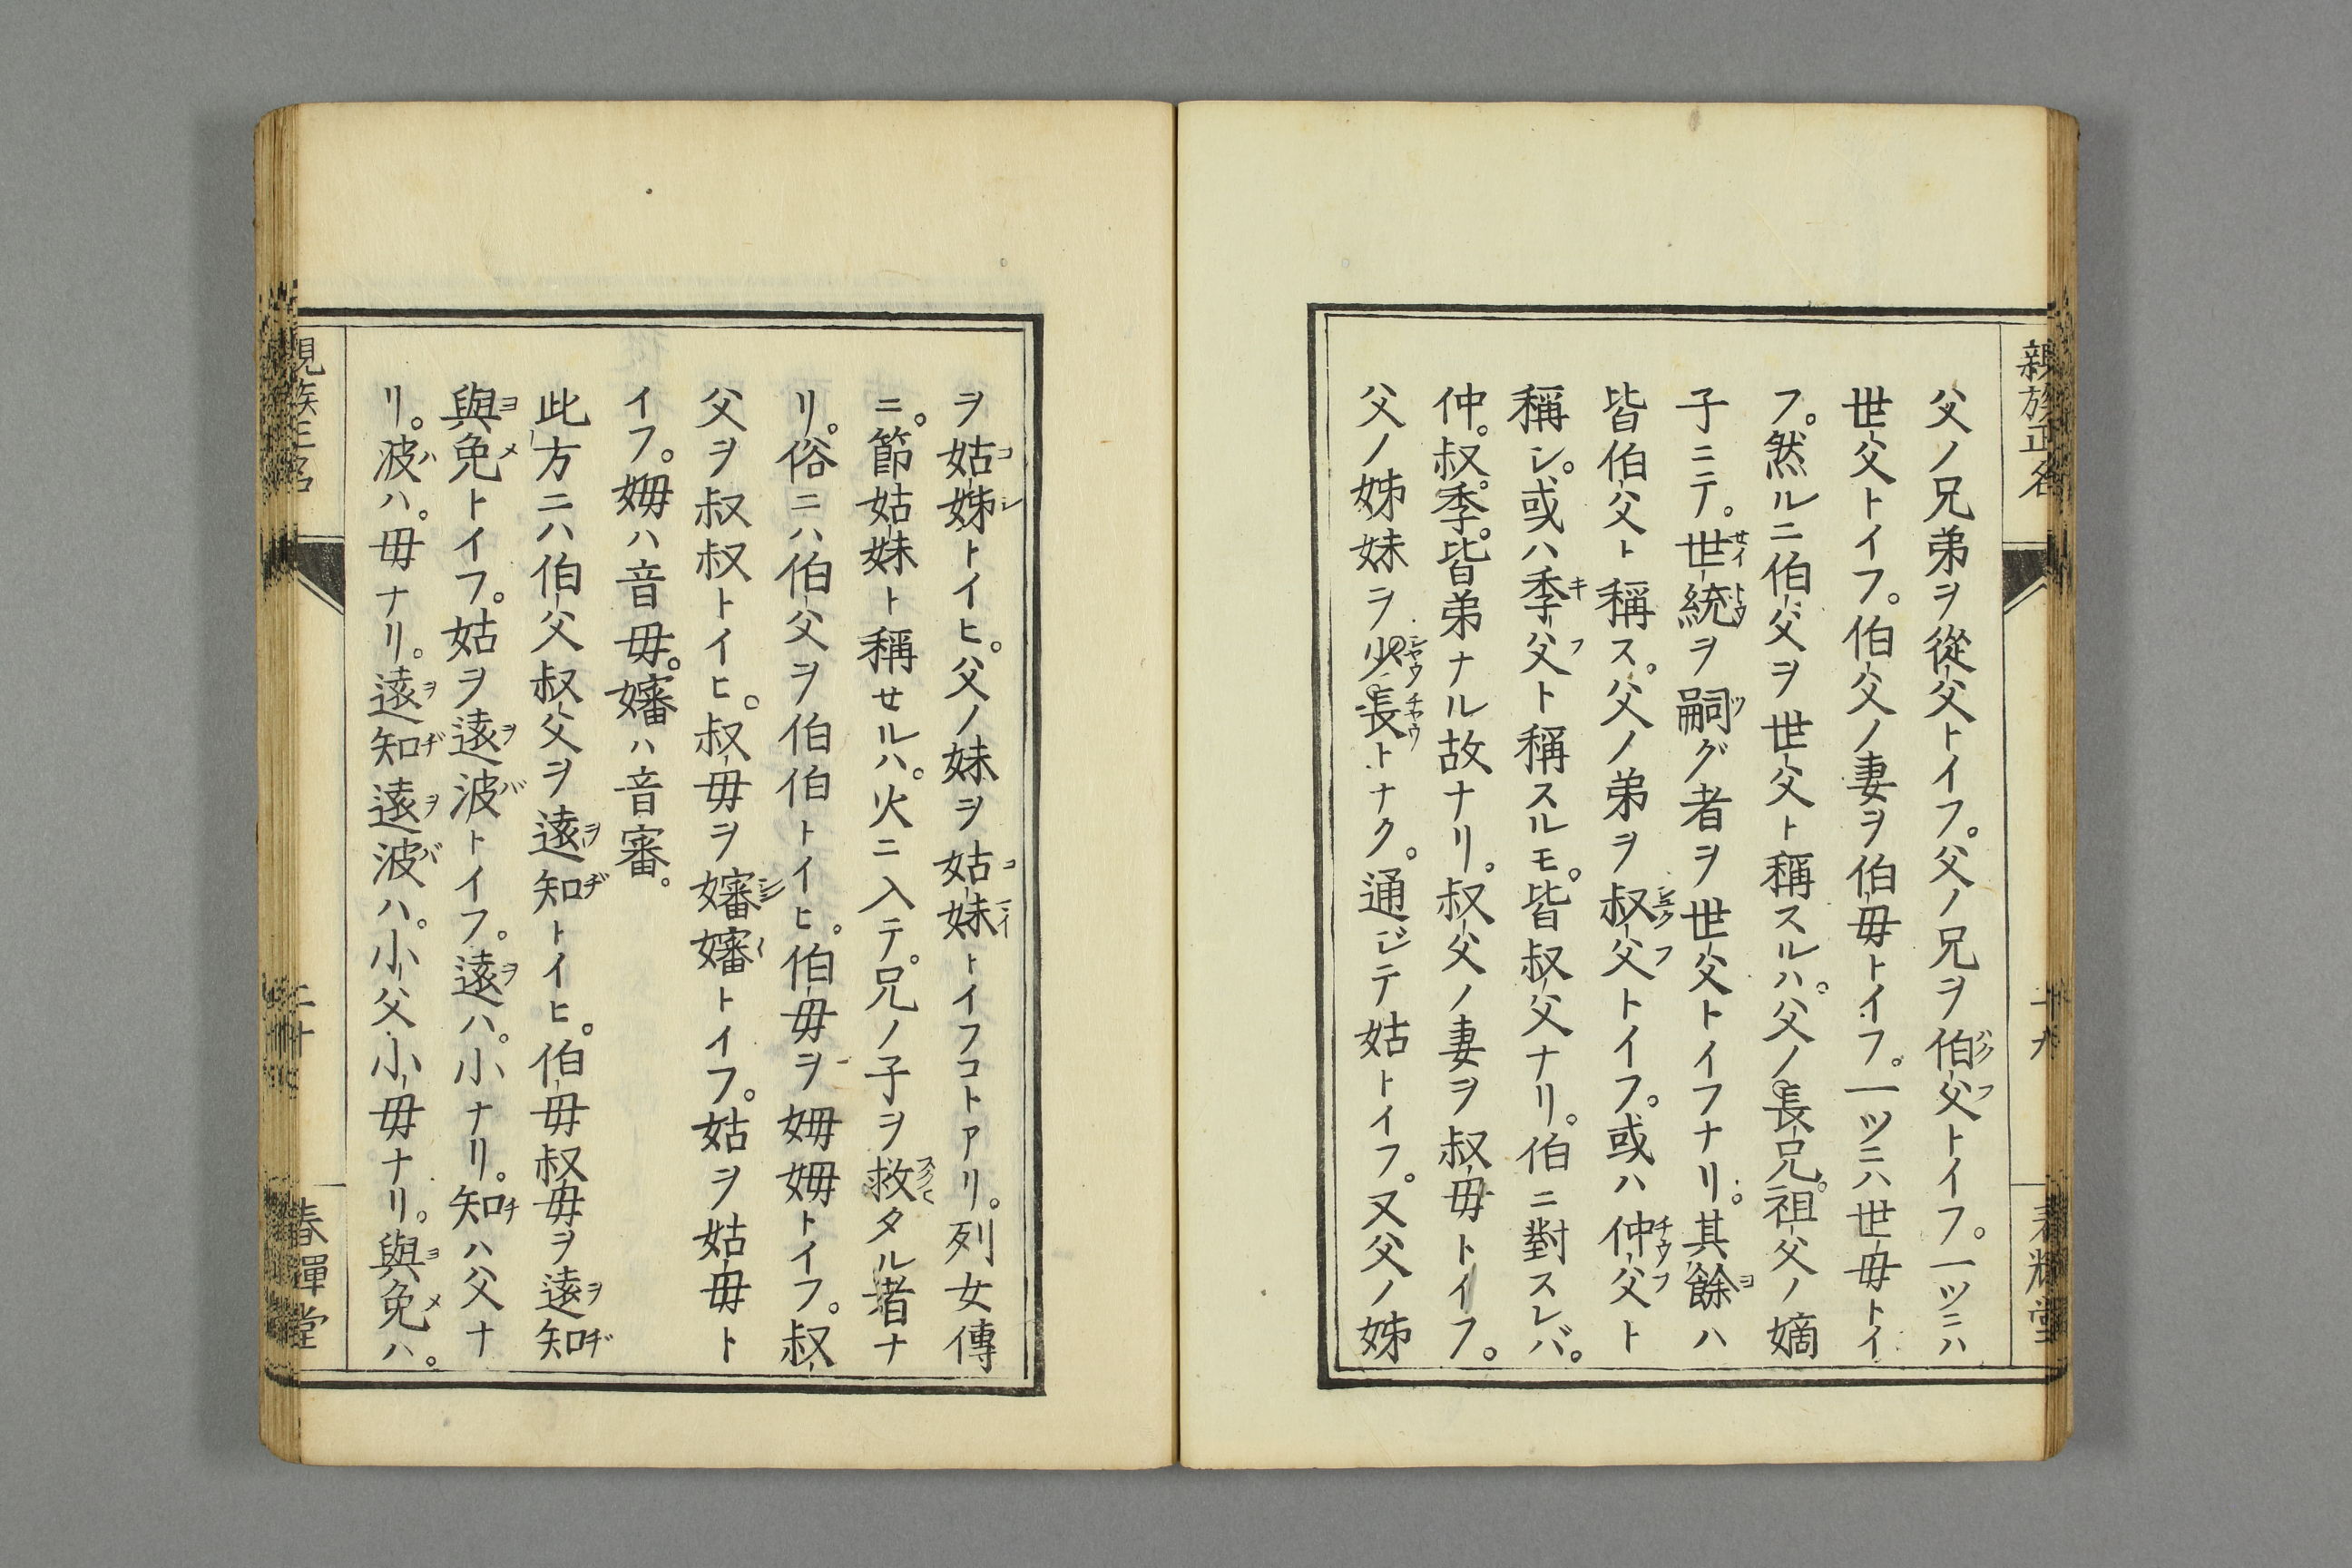 親族正名
十九
春輝堂
父ノ兄弟ヲ從父トイフ。父ノ兄ヲ伯父トイフ。一ツニハ
世父トイフ。伯父ノ妻ヲ伯毋トイフ。一ツニハ世毋トイ
フ。然ルニ伯父ヲ世父ト稱スルハ。父ノ長兄。祖父ノ嫡
子ニテ。世統ヲ嗣グ者ヲ世父トイフナリ。其餘ハ
皆伯父ト稱ス。父ノ弟ヲ叔父トイフ。或ハ仲父ト
稱シ。或ハ季父ト稱スルモ。皆叔父ナリ。伯ニ對スレバ。
仲。叔。季。皆弟ナル故ナリ。叔父ノ妻ヲ叔毋トイフ。
父ノ姊妹ヲ少長トナク。通ジテ姑トイフ。又父ノ姊
ヲ姑姊トイヒ。父ノ妹ヲ姑妹トイフコトアリ。列女傳
ニ。節姑妹ト稱セルハ。火ニ入テ。兄ノ子ヲ救タル者ナ
リ。俗ニハ伯父ヲ伯伯トイヒ。伯毋ヲ姆姆トイフ。叔
父ヲ叔叔トイヒ。叔毋ヲ嬸嬸トイフ。姑ヲ姑毋ト
イフ。姆ハ音毋。嬸ハ音審。
此方ニハ伯父叔父ヲ遠知トイヒ。伯毋叔毋ヲ遠知
與免トイフ。姑ヲ遠波トイフ。遠ハ。小ナリ。知ハ父ナ
リ。波ハ。毋ナリ。遠知遠波ハ。小父小毋ナリ。與免ハ。
親族正名
二十
春輝堂